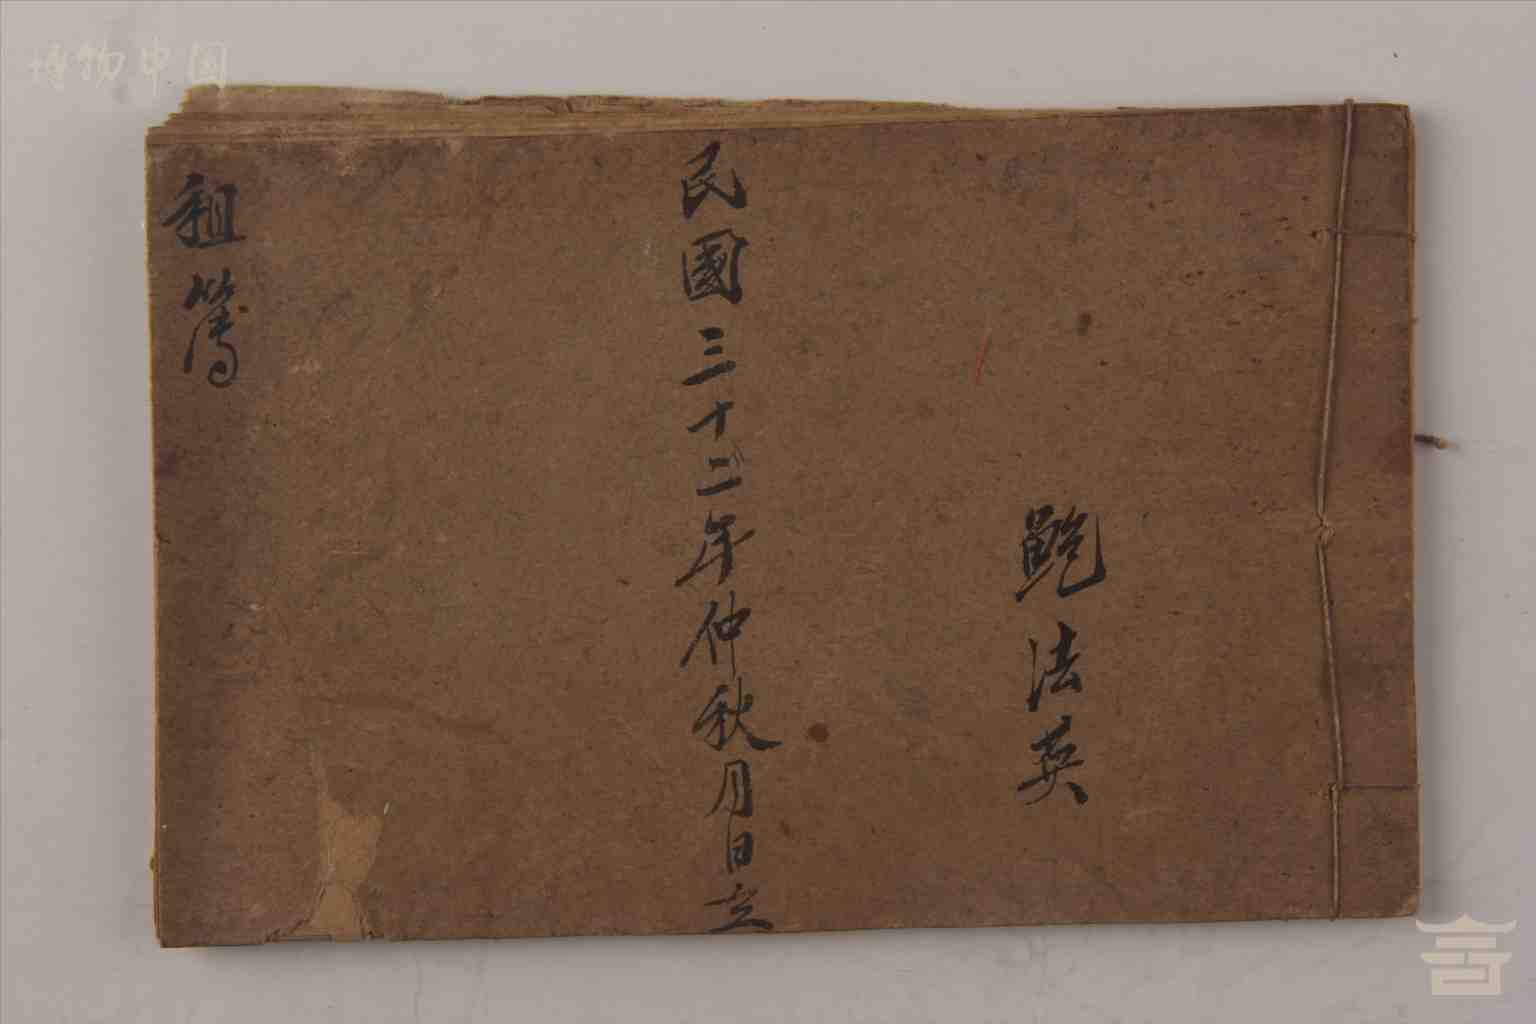 博物中国
鲍法英
民國三十二年仲秋月日立
租簿